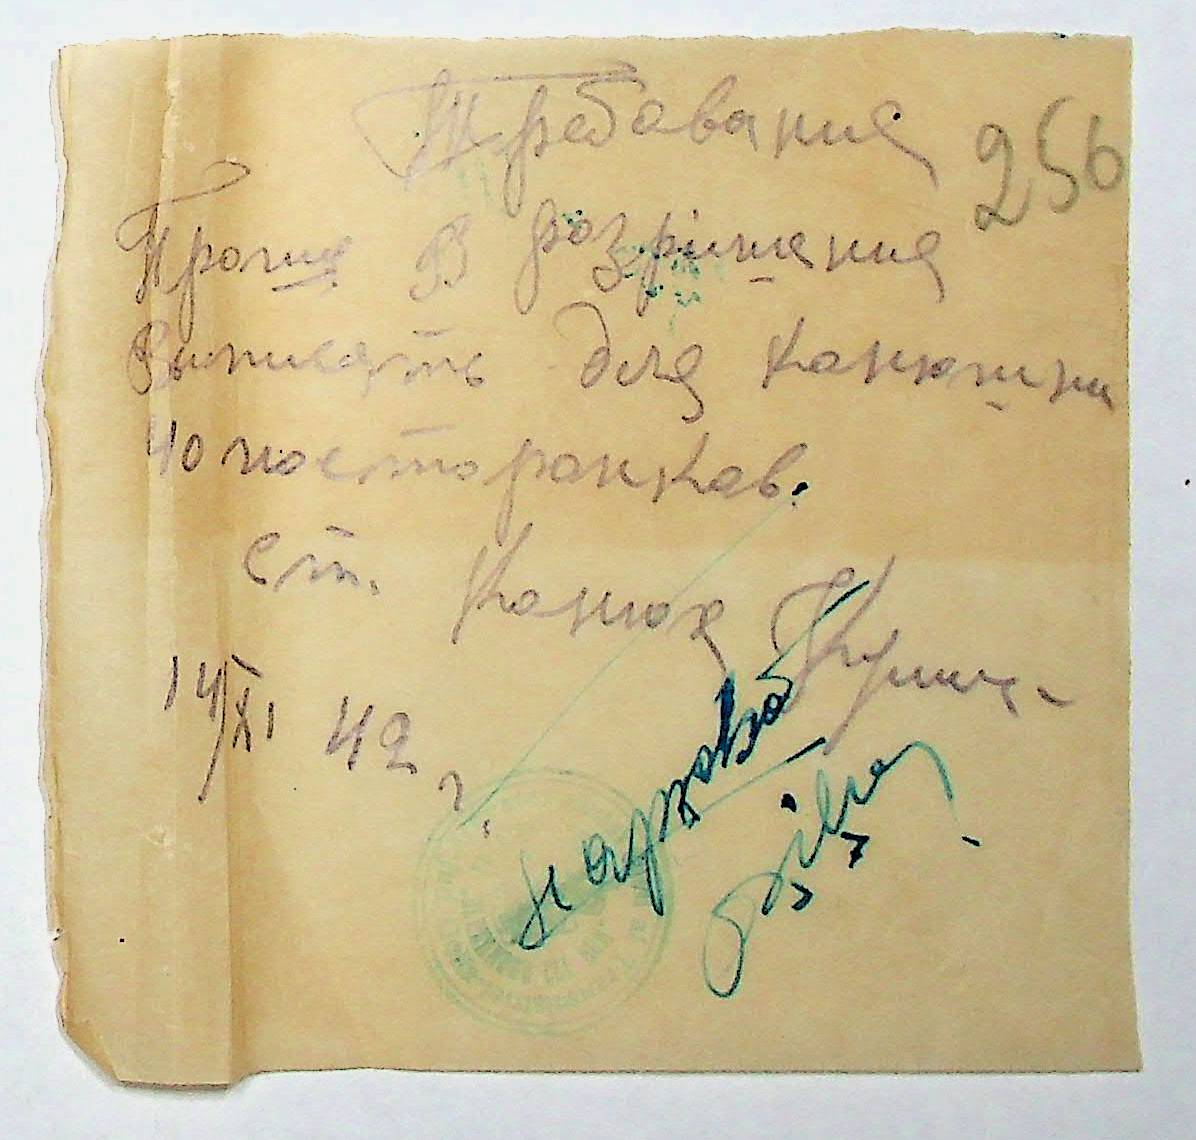 Требования
256
Прошу В розришения
Выписать для канюшни
40 посторонков.
ст. Конюх
14/XI 42 г.